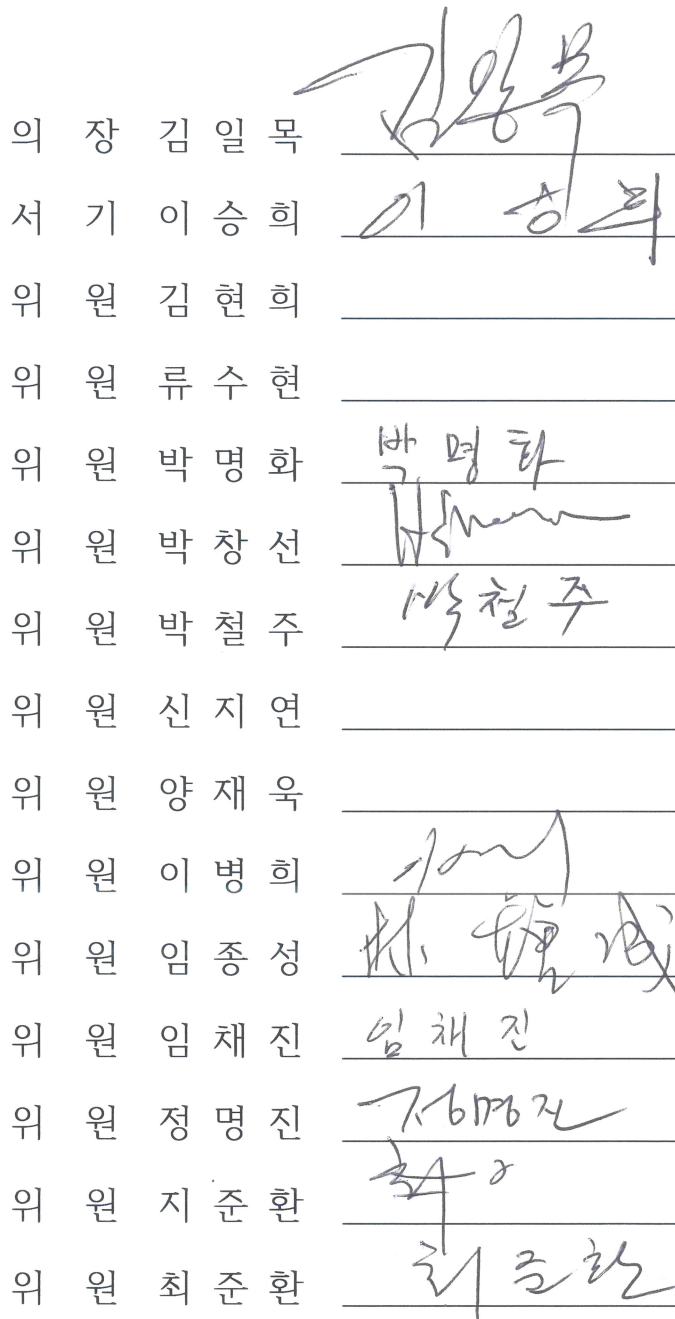 의 장 김 일 목 김일목
서 기 이 승 희 이 승 희
위 원 김 현 희
위 원 류 수 현
위 원 박 명 화 박 명 화
위 원 박 창 선
위 원 박 철 주 박 철 주
위 원 신 지 연
위 원 양 재 욱
위 원 이 병 희
위 원 임 종 성 林
위 원 임 채 진 임 채 진
위 원 정 명 진 정명진
위 원 지 준 환
위 원 최 준 환 최 준 환